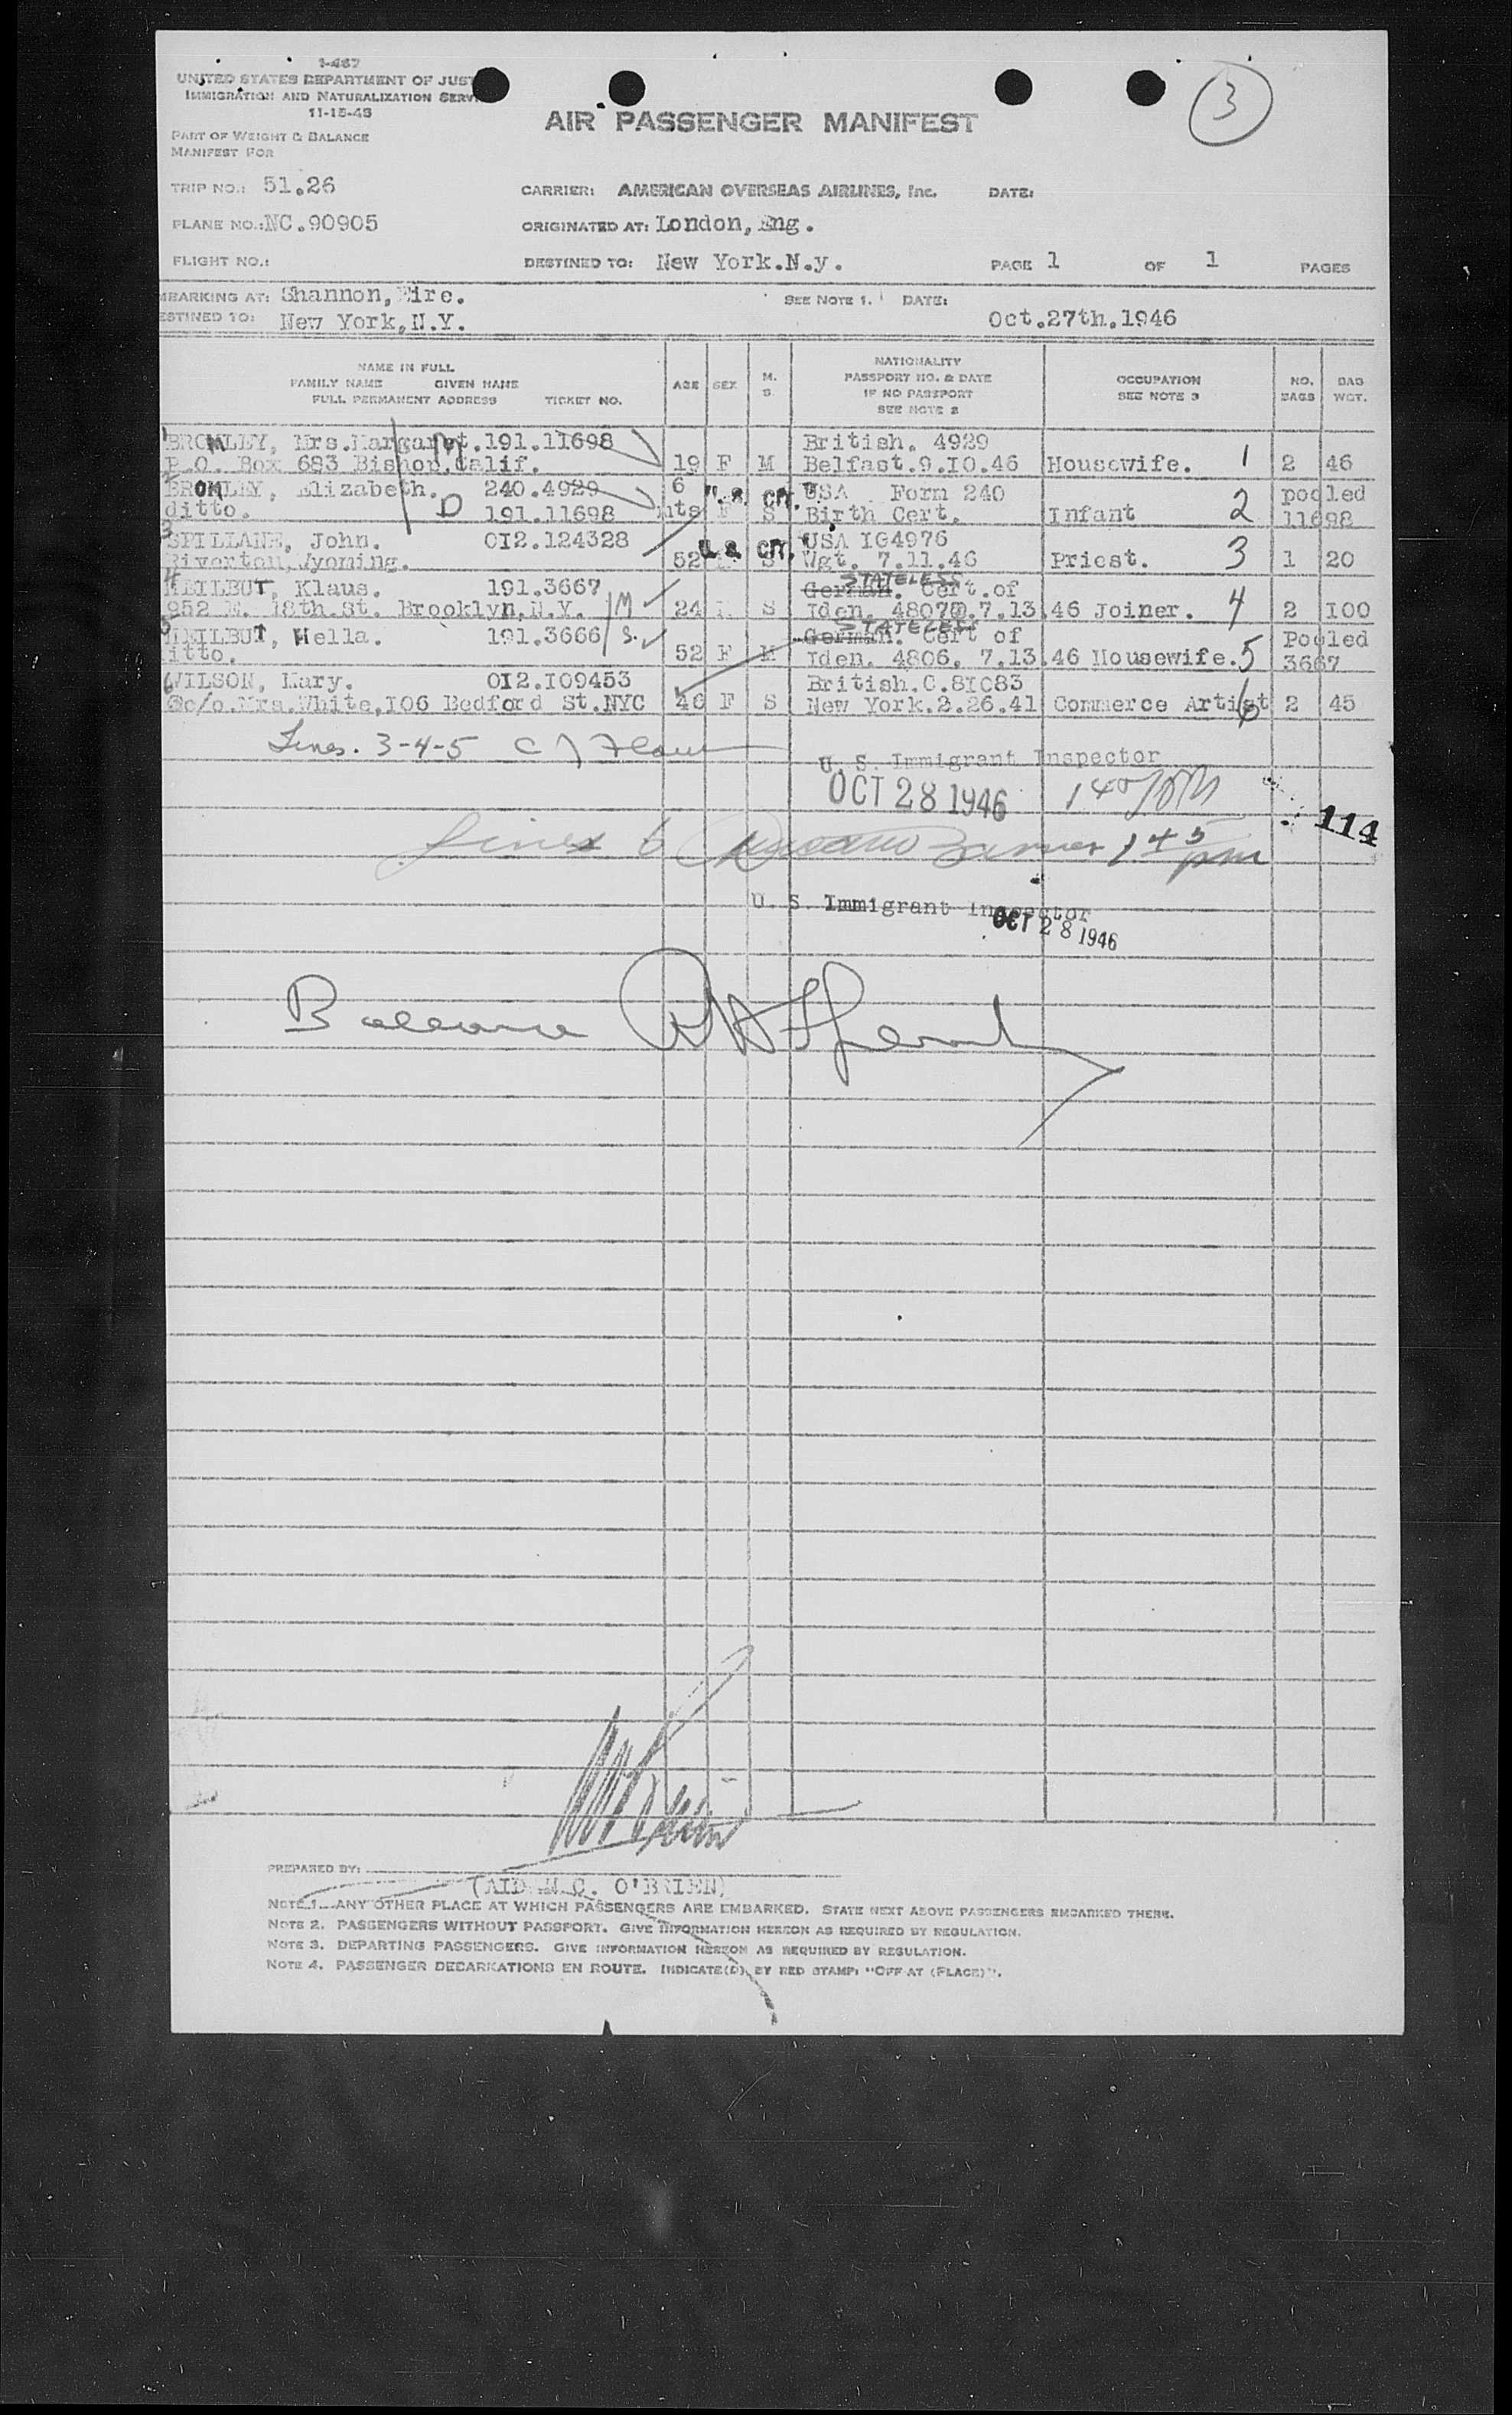 1-467
UNITED STATES DEPARTMENT OF JUST
IMMIGRATION AND NATURALIZATION SERV
11-15-45
PART OF WEIGHT & BALANCE
MANIFEST FOR
AIR PASSENGER MANIFEST
3
TRIP NO.: 51.26
CARRIER: AMERICAN OVERSEAS AIRLINES, Inc. DATE:
PLANE NO.: NC.90905
ORIGINATED AT: London, Eng.
FLIGHT NO.:
DESTINED TO: New York.N.y. PAGE 1 OF 1 PAGES
MBARKING AT: Shannon, Eire. SEE NOTE 1. DATE:
ESTINED TO: New York, N.Y. Oct.27th.1946
NAME IN FULL
FAMILY NAME GIVEN NAME
FULL PERMANENT ADDRESS TICKET NO.
AGE SEX M. S. NATIONALITY
PASSPORT NO. & DATE
IF NO PASSPORT
SEE NOTE 2
OCCUPATION
SEE NOTE 3
NO. BAGS
BAG WGT.
BROMLEY, Mrs.Margaret.191.11698 British. 4929
P.O. Box 683 Bishop.Calif. M 19 F M Belfast.9.10.46 Housewife. 1 2 46
BROMLEY, Elizabeth. 240.4929 6 U.S. CIT. USA Form 240 pooled
ditto. D 191.11698 mts F S Birth Cert. Infant 2 11698
SPILLANE, John. 012.124328 U.S. CIT. USA IG4976
Riverton, Wyoming. 52 S Wgt. 7.11.46 Priest. 3 1 20
HEILBUT, Klaus. 191.3667 STATELESS German. Cert.of
952 E. 18th.St. Brooklyn,N.Y. M 24 M S Iden. 4807@.7.13.46 Joiner. 4 2 100
HEILBUT, Hella. 191.3666 STATELESS German. Cert of Pooled
ditto. S. 52 F M Iden. 4806. 7.13.46 Housewife. 5 3667
WILSON, Mary. 012.109453 British.C.81083
c/o.Mrs.White,106 Bedford St.NYC 46 F S New York.2.26.41 Commerce Artist 6 2 45
Lines. 3-4-5
U. S. Immigrant Inspector
OCT 28 1946 140 PM
114
Lines 6 145 pm
U. S. Immigrant Inspector
OCT 28 1946
Balance
PREPARED BY:
(AIDAN C. O'BRIEN)
NOTE 1. ANY OTHER PLACE AT WHICH PASSENGERS ARE EMBARKED. STATE NEXT ABOVE PASSENGERS EMBARKED THERE.
NOTE 2. PASSENGERS WITHOUT PASSPORT. GIVE INFORMATION HEREON AS REQUIRED BY REGULATION.
NOTE 3. DEPARTING PASSENGERS. GIVE INFORMATION HEREON AS REQUIRED BY REGULATION.
NOTE 4. PASSENGER DEBARKATIONS EN ROUTE. INDICATE(D) BY RED STAMP: "OFF AT (PLACE)".